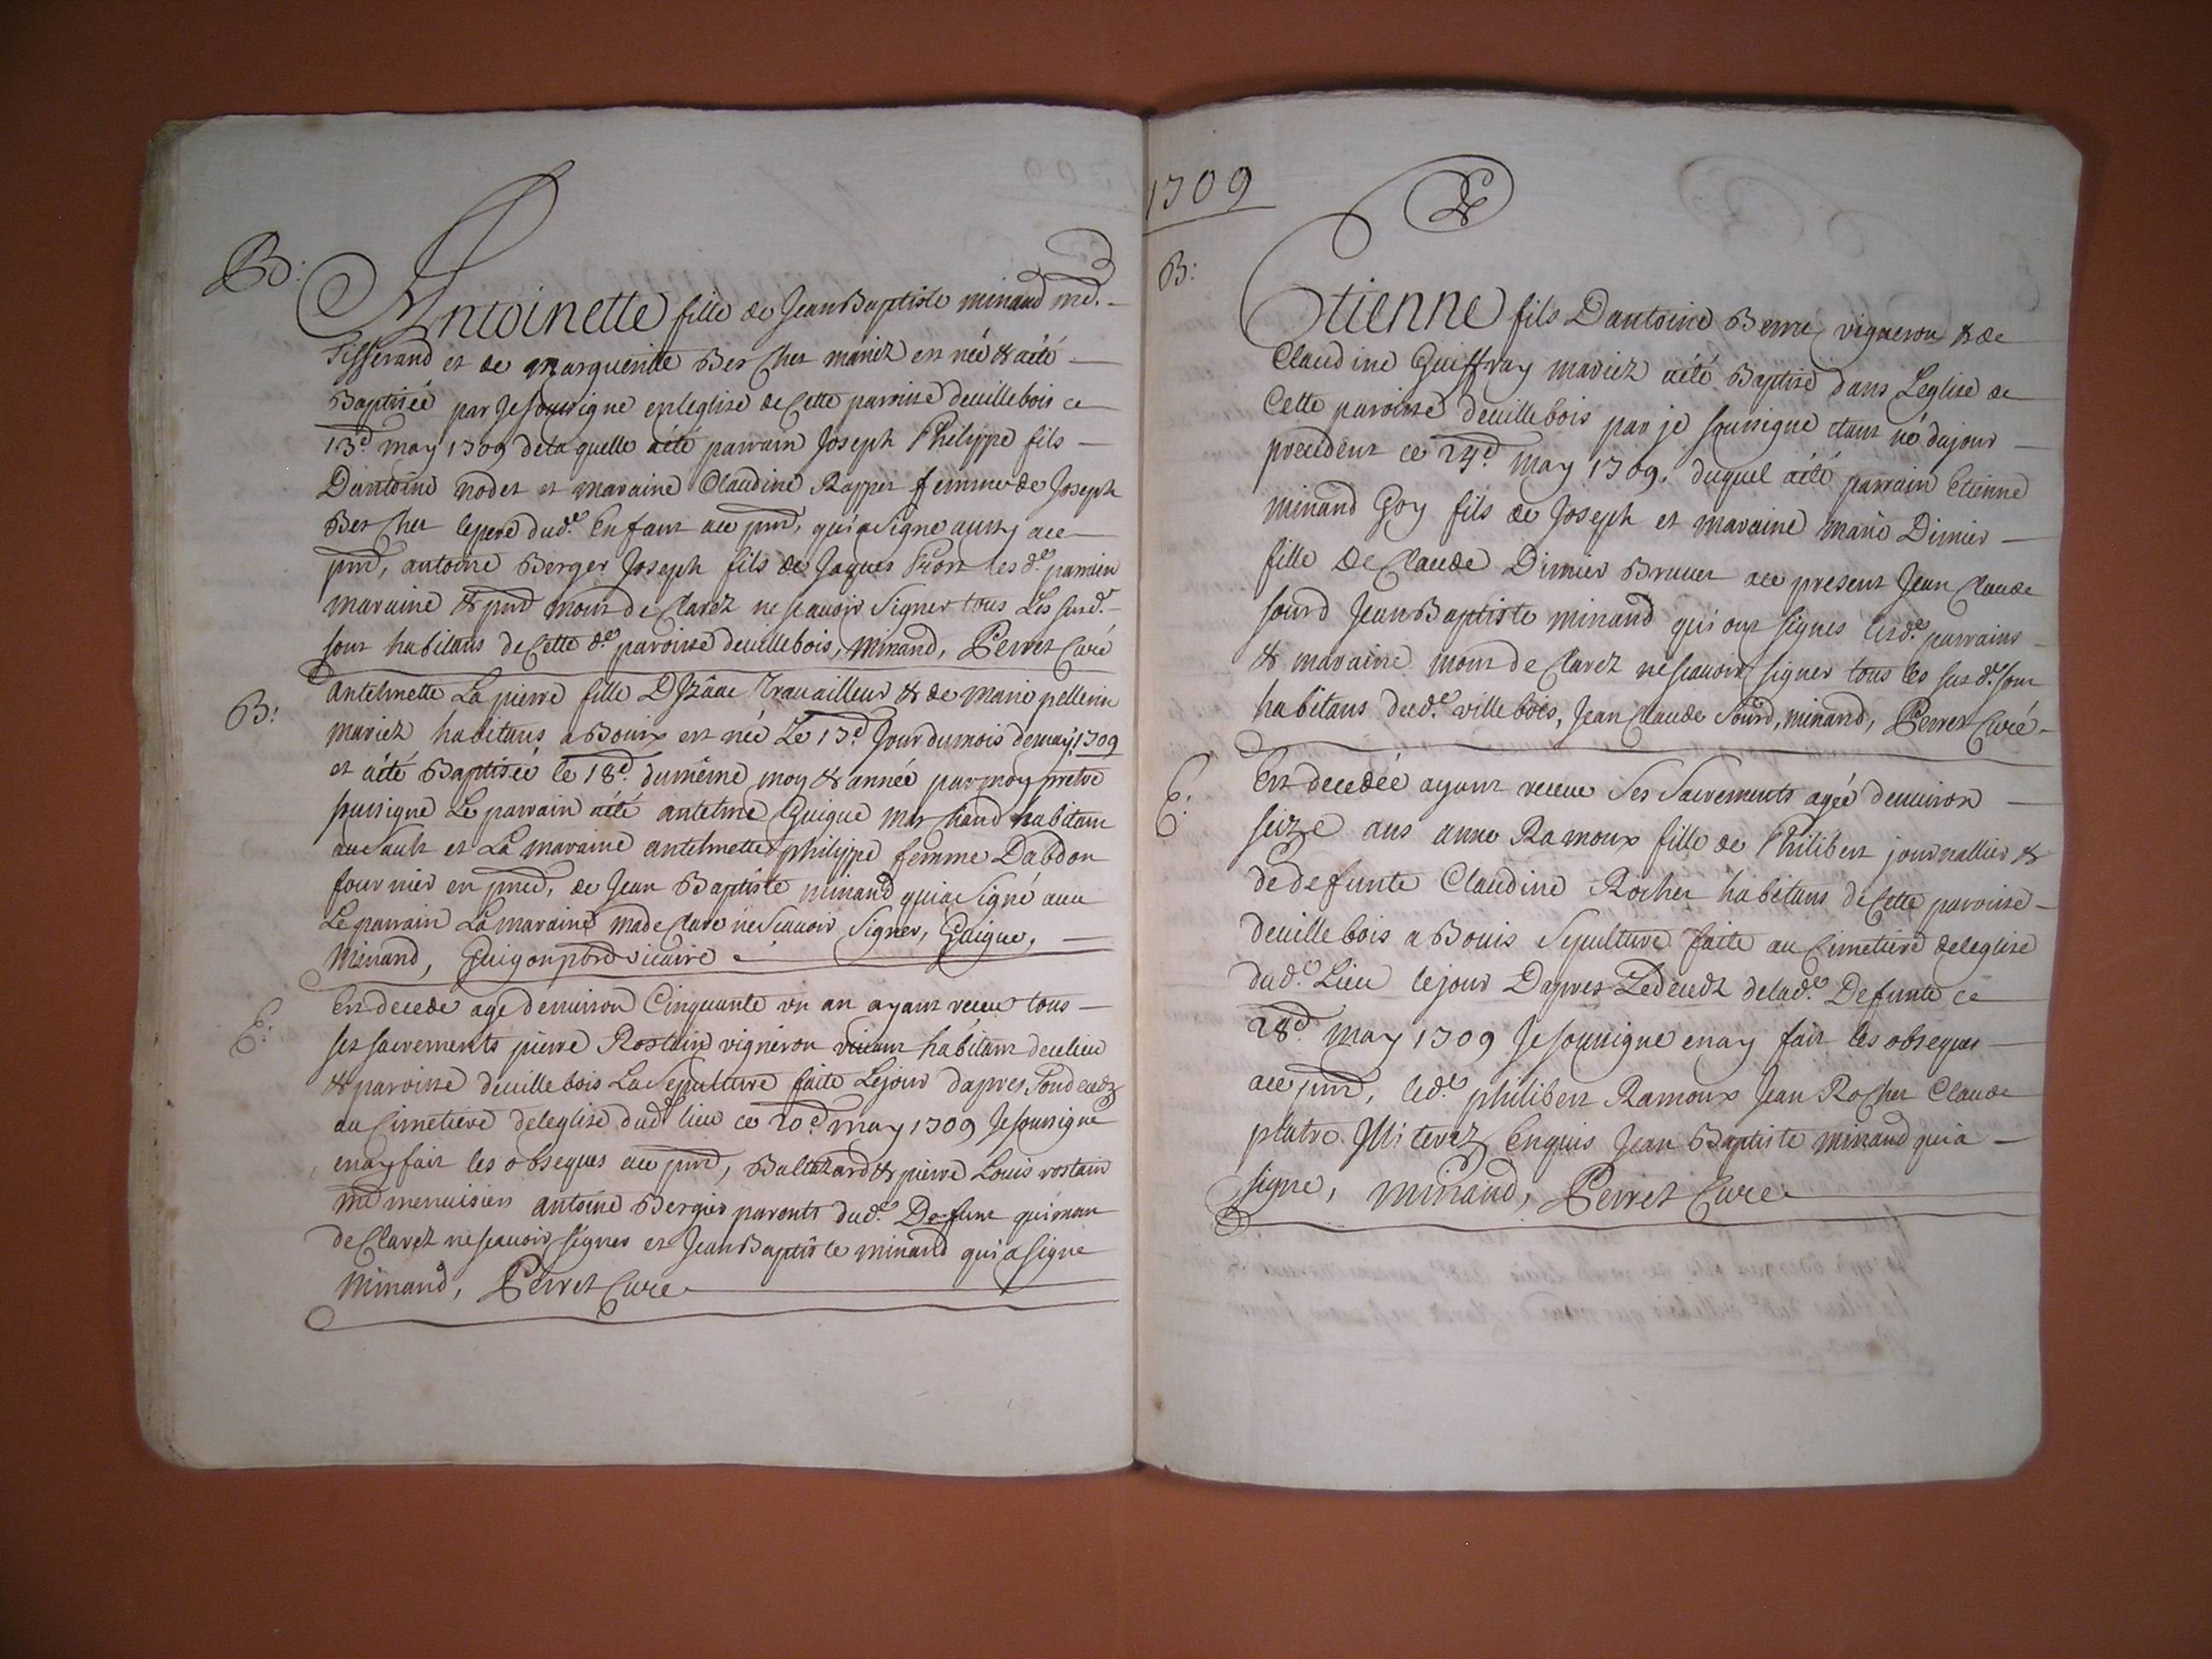 B:
Antoinette fille de Jean Baptiste minand md.
Tisserand et de marguerite Bercher mariez est née & aété
Baptisée par Jesousigne enleglise decette paroisse deuillebois ce
13.e may 1709 delaquelle aété parrain Joseph Philippe fils
Dantoine nodet et maraine Claudine Rapper femme de Joseph
Bercher lepere dud.t Enfant ace pnt, qui a Signe aussy ace
pnt, antoine Berger Joseph fils de Jaques les d.ts parrain
maraine & pnt mont declarez nescauoir Signer tous Les susd.ts
sont habitans decette d.te paroisse deuillebois, Minand, Perret Curé
B:
antelmette Lapierre fille DIzâac Trauailleur & de marie pellerin
mariez habitans a Bouix est née Le 17.e Jour dumois demay 1709
et aété Baptisée le 18.e dumême moy & année par moy pretre
sousigne Le parrain aété antelme Guigue marchand habitant
au Sault et La maraine antelmette philippe femme Dabdon
fournier en pnce, de Jean Baptiste minand quia Signé auec
Le parrain La maraine madeclaré nescauoir Signer, Guigue,
Minand, Guigon pbre vicaire
E:
Est decede age denuiron Cinquante un an ayant receu tous
ses sacrements pierre Rostaind vigneron habitant decelieu
& paroisse deuillebois La Sepulture faite Lejour dapres Sondecedz
au Cimetiere deleglise dud.t lieu ce 20.e may 1709 Jesoussigne
enay fait les obseques ace pnt, Baltazard & pierre Louis rostain
md menuisiers antoine Bergier parents dud.t Defunt quimon
declarez nescauoir signer et Jean Baptiste minand qui a signe
Minand, Perret Curé
1709
B:
Etienne fils Dantoine Berne vigneron & de
Claudine Guiffray mariez aété Baptisé dans Leglise de
Cette paroisse deuillebois par je sousigne etant né dujour
precedent ce 24.e may 1709. duquel aété parrain Etienne
minand Goy fils de Joseph et maraine marie Dimier
fille de Claude Dimier Brunet ace present Jean Claude
sourd Jean Baptiste minand qui ont signes lesd.ts parrains
& maraine mont declarez nescauoir signer tous les susd.ts sont
habitans dud.t villebois, Jean Claude Sourd, minand, Perret Curé
E:
Est decedée ayant receue Ses Sacrements agée denuiron
seize ans anne Ramoux fille de Philibert journallier &
dedefunte Claudine Rocher habitans decette paroisse
deuillebois a Bouis Sepulture faite au Cimetiere deleglise
dud.t Lieu lejour Dapres Ledecedz delad.te Defunte ce
28.e may 1709 Jesousigne enay fait les obseques
ace pnt, led.t philibert Ramoux Jean Rocher Claude
platre Illiterez Enquis Jean Baptiste minand quia
signe, minand, Perret Cure